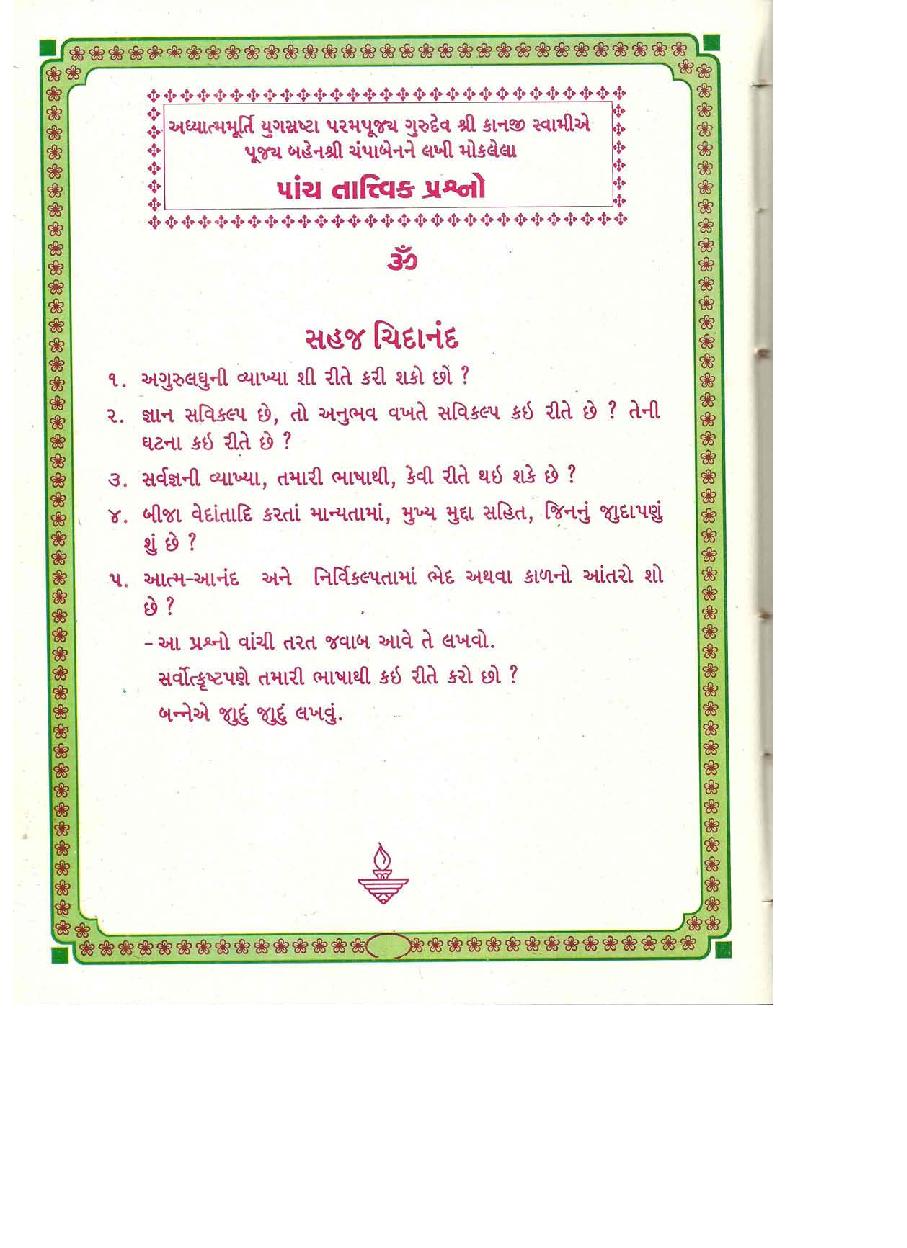 અધ્યાત્મમૂર્તિ યુગસ્રષ્ટા પરમપૂજ્ય ગુરુદેવ શ્રી કાનજી સ્વામીએ
પૂજ્ય બહેનશ્રી ચંપાબેનને લખી મોકલેલા
પાંચ તાત્ત્વિક પ્રશ્નો
ૐ
સહજ ચિદાનંદ
૧. અગુરુલઘુની વ્યાખ્યા શી રીતે કરી શકો છો ?
૨. જ્ઞાન સવિકલ્પ છે, તો અનુભવ વખતે સવિકલ્પ કઇ રીતે છે ? તેની
ઘટના કઇ રીતે છે ?
૩. સર્વજ્ઞની વ્યાખ્યા, તમારી ભાષાથી, કેવી રીતે થઇ શકે છે ?
૪. બીજા વેદાંતાદિ કરતાં માન્યતામાં, મુખ્ય મુદ્દા સહિત, જિનનું જુદાપણું
શું છે ?
૫. આત્મ-આનંદ અને નિર્વિકલ્પતામાં ભેદ અથવા કાળનો આંતરો શો
છે ?
- આ પ્રશ્નો વાંચી તરત જવાબ આવે તે લખવો.
સર્વોત્કૃષ્ટપણે તમારી ભાષાથી કઇ રીતે કરો છો ?
બન્નેએ જુદું જુદું લખવું.